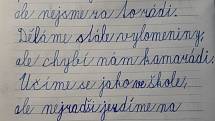 ale nejsme za to rádi.
Děláme stále vylomeniny,
ale chybí nám kamarádi.
Učíme se jako ve škole,
ale nejradši jezdíme na